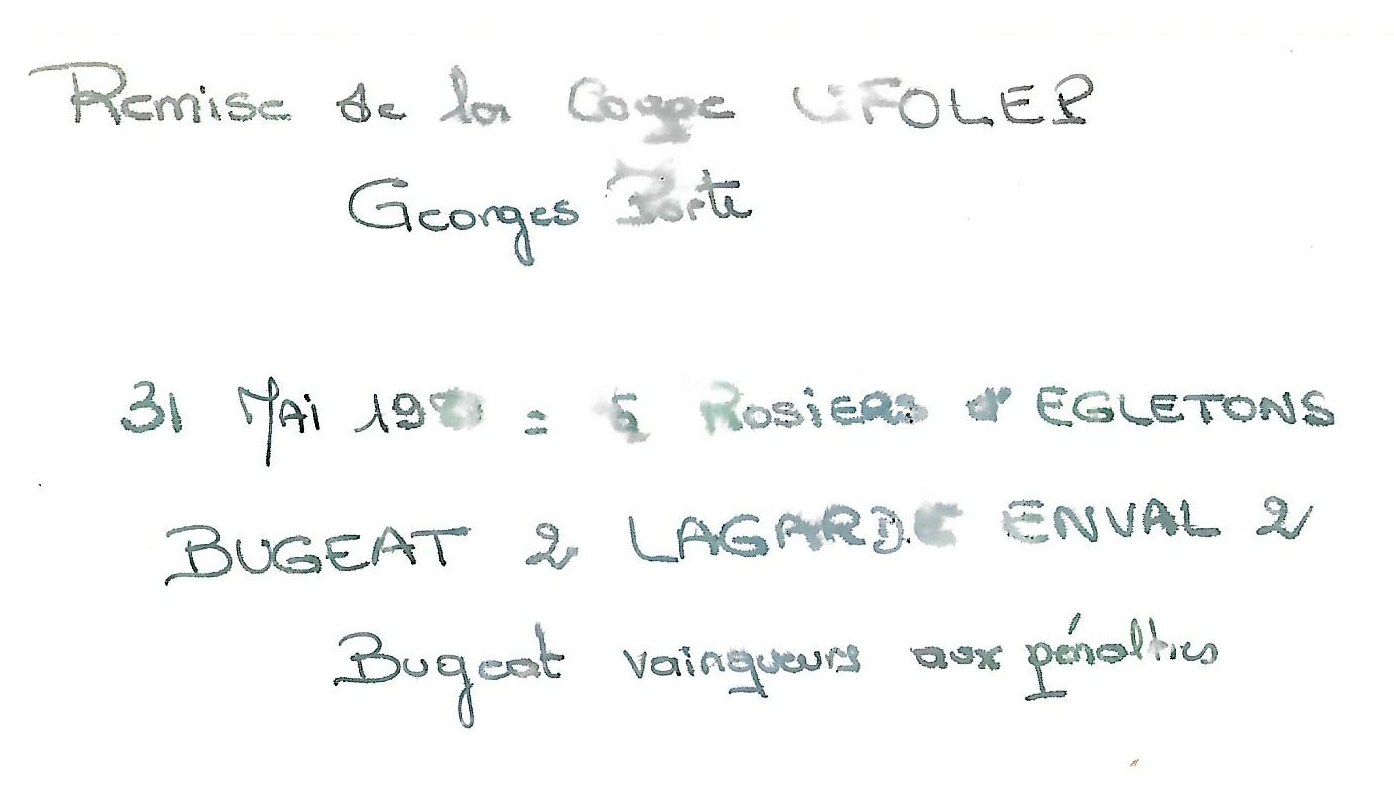 Remise de la Coupe UFOLEP
Georges Porte
31 Mai = Rosiers d'EGLETONS
BUGEAT 2 LAGARDE ENVAL 2
Bugeat vainqueurs aux pénalties